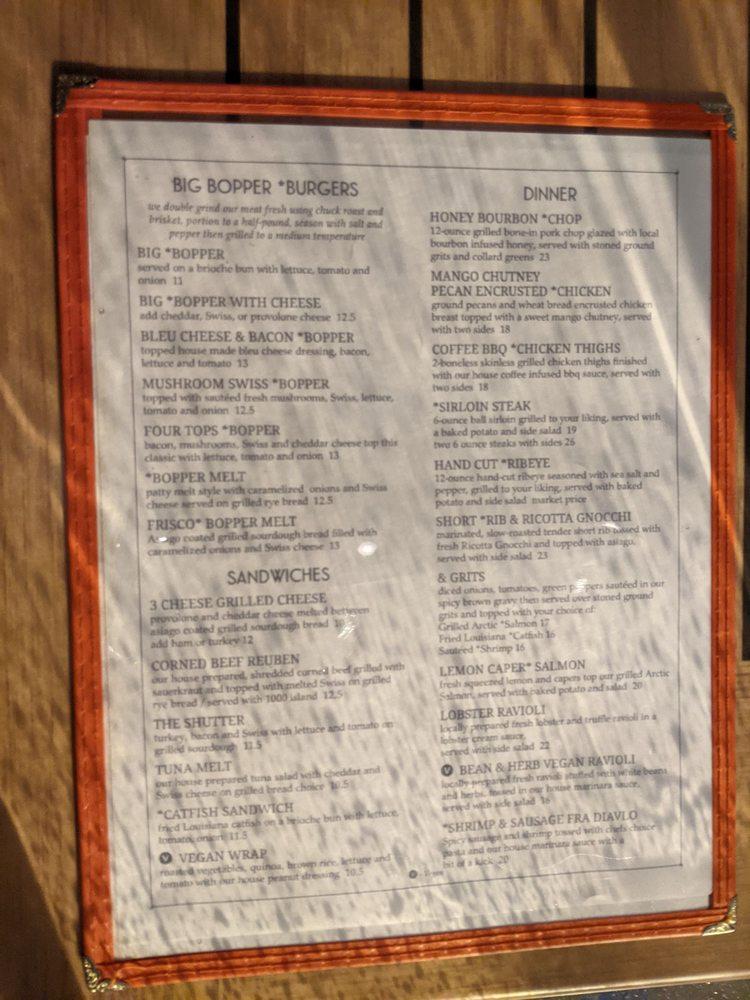 BIG BOPPER *BURGERS
we double grind our meat fresh using chuck roast and
brisket, portion to a half-pound, season with salt and
pepper then grilled to a medium temperature
BIG *BOPPER
served on a brioche bun with lettuce, tomato and
onion 11
BIG *BOPPER WITH CHEESE
add cheddar, Swiss, or provolone cheese 12.5
BLEU CHEESE & BACON *BOPPER
topped house made bleu cheese dressing, bacon,
lettuce and tomato 13
MUSHROOM SWISS *BOPPER
topped with sautéed fresh mushrooms, Swiss, lettuce,
tomato and onion 12.5
FOUR TOPS *BOPPER
bacon, mushrooms, Swiss and cheddar cheese top this
classic with lettuce, tomato and onion 13
*BOPPER MELT
patty melt style with caramelized onions and Swiss
cheese served on grilled rye bread 12.5
FRISCO* BOPPER MELT
Asiago coated grilled sourdough bread filled with
caramelized onions and Swiss cheese 13
SANDWICHES
3 CHEESE GRILLED CHEESE
provolone and cheddar cheese melted between
asiago coated grilled sourdough bread 10
add ham or turkey 12
CORNED BEEF REUBEN
our house prepared, shredded corned beef grilled with
sauerkraut and topped with melted Swiss on grilled
rye bread / served with 1000 island 12.5
THE SHUTTER
turkey, bacon and Swiss with lettuce and tomato on
grilled sourdough 11.5
TUNA MELT
our house prepared tuna salad with cheddar and
Swiss cheese on grilled bread choice 10.5
*CATFISH SANDWICH
fried Louisiana catfish on a brioche bun with lettuce,
tomato, onion 11.5
V VEGAN WRAP
roasted vegetables, quinoa, brown rice, lettuce and
tomato with our house peanut dressing 10.5
DINNER
HONEY BOURBON *CHOP
12-ounce grilled bone-in pork chop glazed with local
bourbon infused honey, served with stoned ground
grits and collard greens 23
MANGO CHUTNEY
PECAN ENCRUSTED *CHICKEN
ground pecans and wheat bread encrusted chicken
breast topped with a sweet mango chutney, served
with two sides 18
COFFEE BBQ *CHICKEN THIGHS
2-boneless skinless grilled chicken thighs finished
with our house coffee infused bbq sauce, served with
two sides 18
*SIRLOIN STEAK
6-ounce ball sirloin grilled to your liking, served with
a baked potato and side salad 19
two 6 ounce steaks with sides 26
HAND CUT *RIBEYE
12-ounce hand-cut ribeye seasoned with sea salt and
pepper, grilled to your liking, served with baked
potato and side salad market price
SHORT *RIB & RICOTTA GNOCCHI
marinated, slow-roasted tender short rib tossed with
fresh Ricotta Gnocchi and topped with asiago,
served with side salad 23
& GRITS
diced onions, tomatoes, green peppers sautéed in our
spicy brown gravy then served over stoned ground
grits and topped with your choice of:
Grilled Arctic *Salmon 17
Fried Louisiana *Catfish 16
Sauteed *Shrimp 16
LEMON CAPER* SALMON
fresh squeezed lemon and capers top our grilled Arctic
Salmon, served with baked potato and salad 20
LOBSTER RAVIOLI
locally prepared fresh lobster and truffle ravioli in a
lobster cream sauce,
served with side salad 22
V BEAN & HERB VEGAN RAVIOLI
locally prepared fresh ravioli stuffed with white beans
and herbs, tossed in our house marinara sauce,
served with side salad 16
*SHRIMP & SAUSAGE FRA DIAVLO
Spicy sausage and shrimp tossed with chefs choice
pasta and our house marinara sauce with a
bit of a kick 20